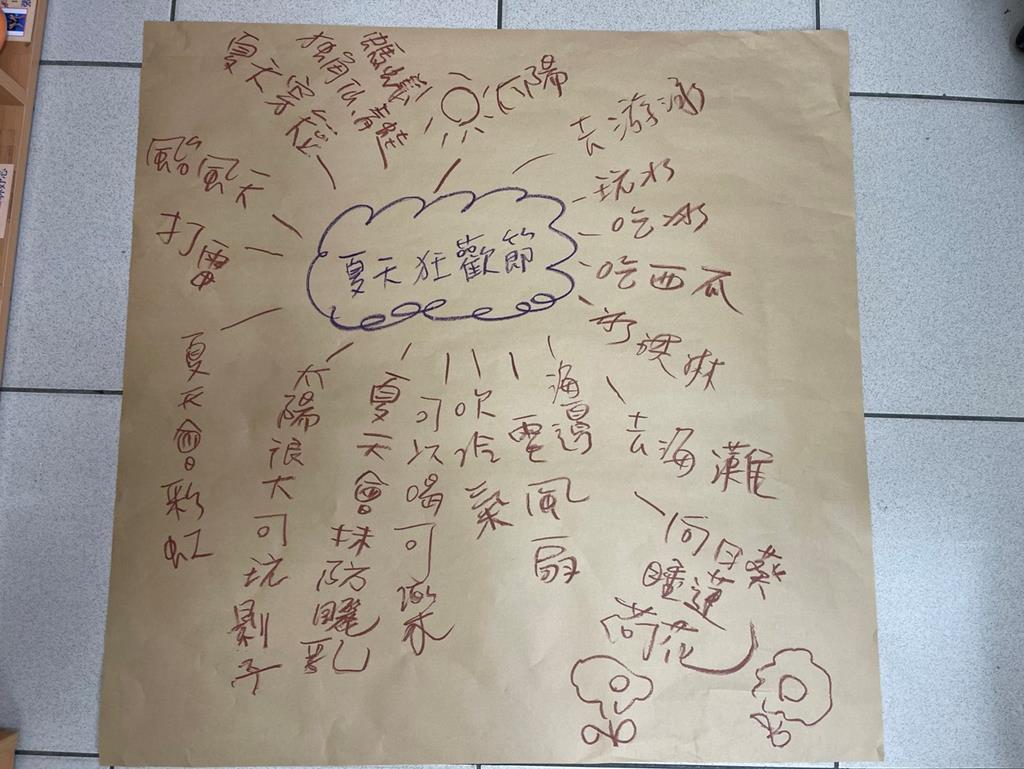 夏天狂歡節
太陽
去游泳
玩水
吃冰
吃西瓜
冰淇淋
去海灘
向日葵
睡蓮
荷花
海邊
電風扇
吹冷氣
可以喝可樂
夏天會抹防曬乳
太陽很大可玩影子
夏天會彩虹
打雷
颱風天
夏天
青蛙